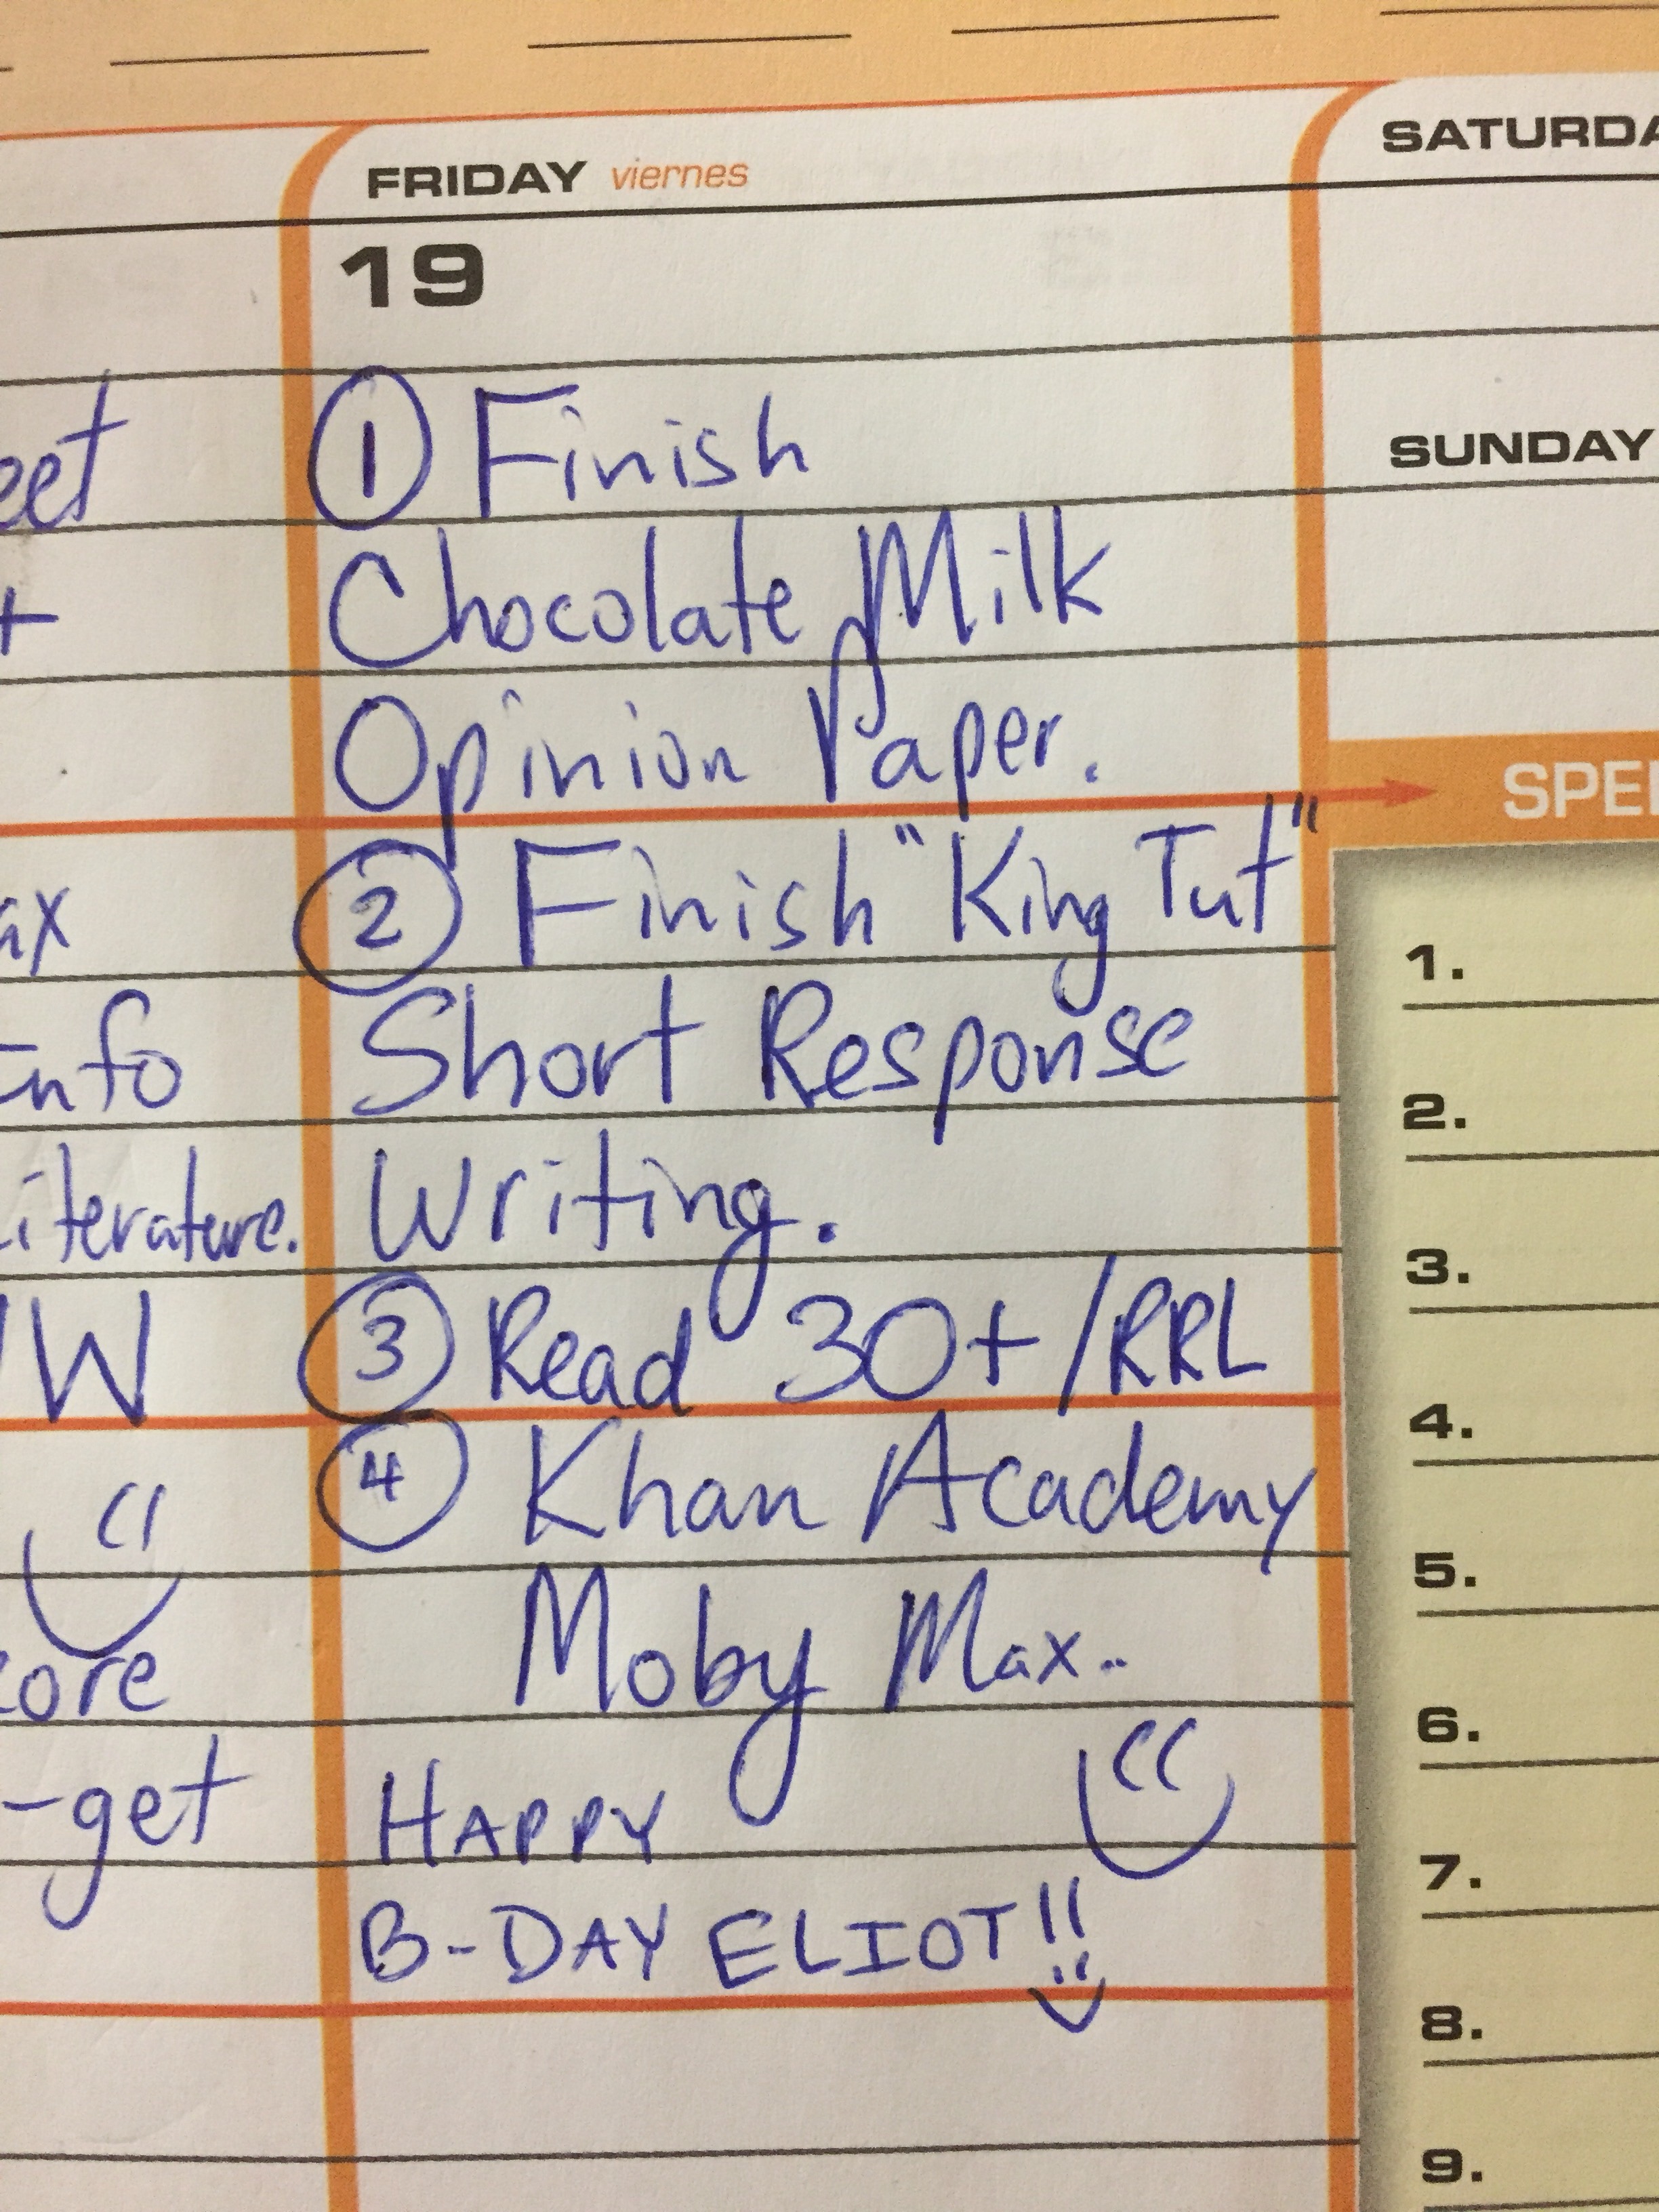 FRIDAY viernes
19
① Finish
Chocolate Milk
Opinion Paper.
② Finish "King Tut"
Short Response
Writing.
③ Read 30+/RRL
④ Khan Academy
Moby Max..
HAPPY
B-DAY ELIOT!!
eet
ax
info
iterature.
W
core
-get
SATURDA
SUNDAY
SPEL
1.
2.
3.
4.
5.
6.
7.
8.
9.